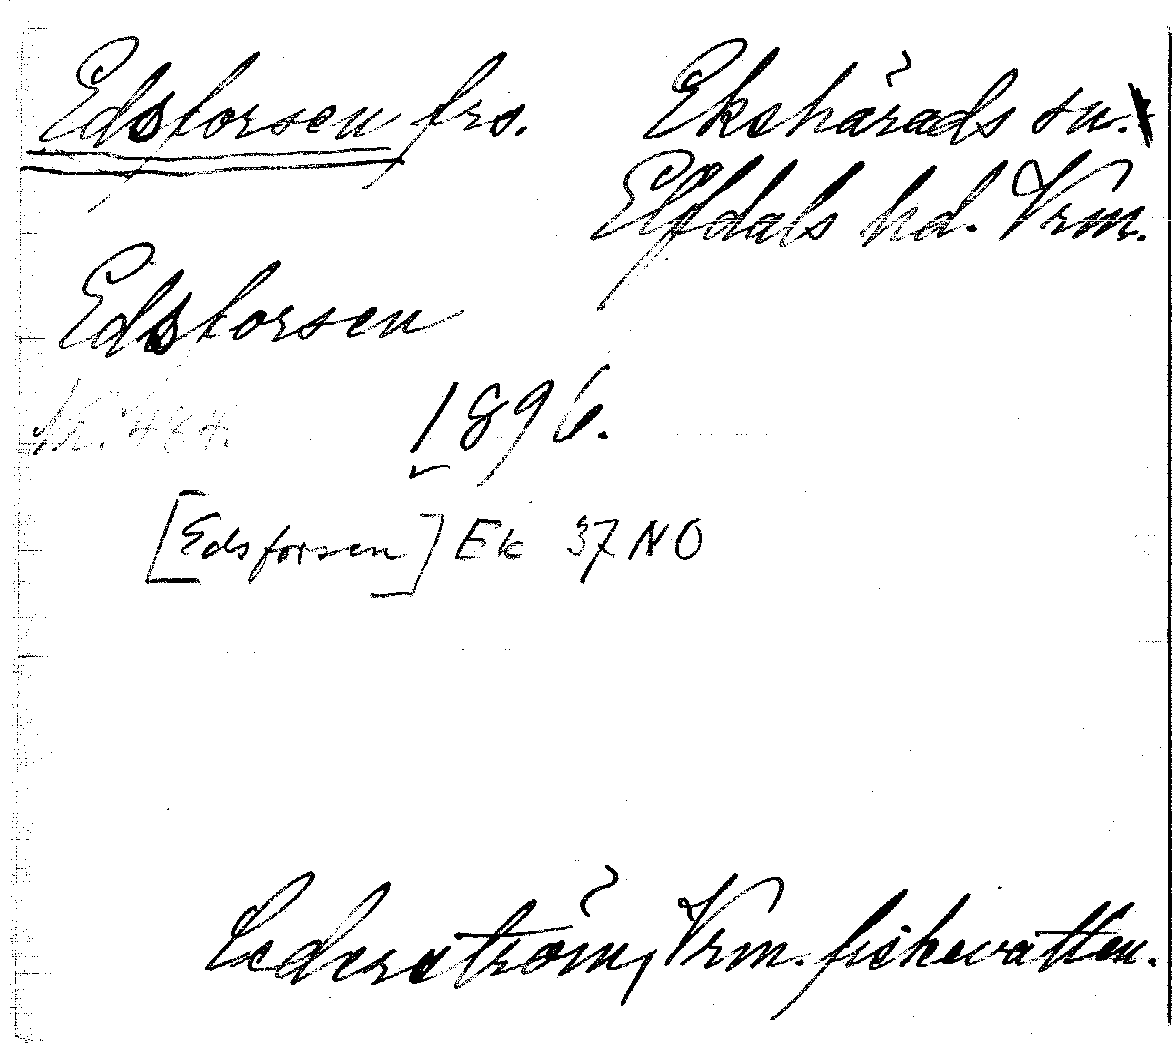 Edsforsen frs. Ekshärads sn.
Elfdals hd. Vrm.
Edsforsen
484. 1896.
[Edsforsen] Ek 37 NO
Cederström, Vrm. fiskevatten.